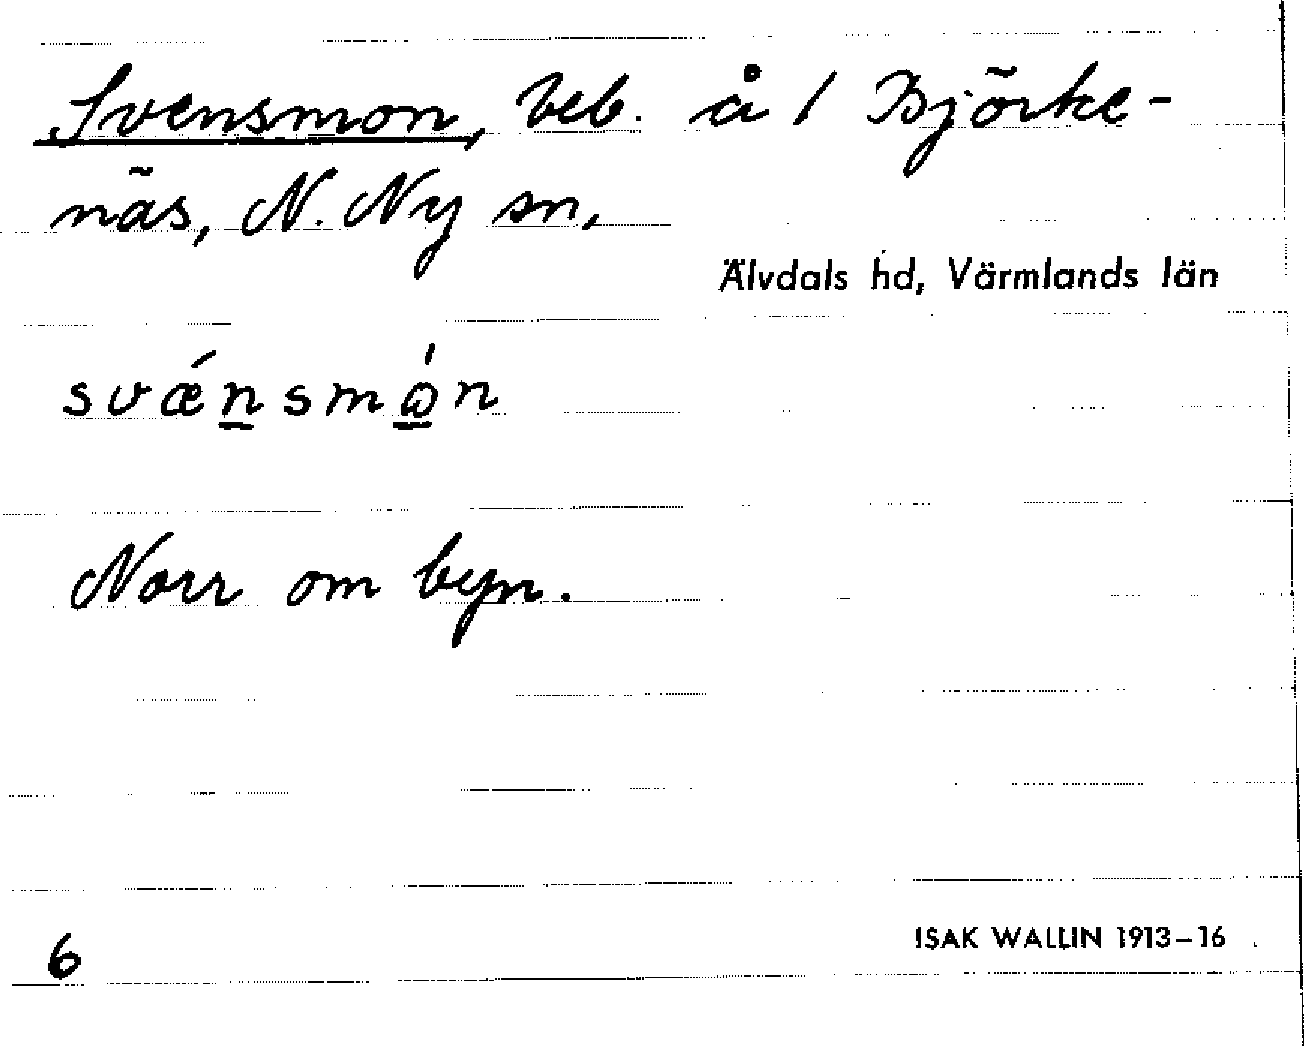 Svensmon, beb. å 1 Björke-
näs, N. Ny sn,
Älvdals hd, Värmlands län
svǽn̲smò̲n
Norr om byn.
6
ISAK WALLIN 1913-16